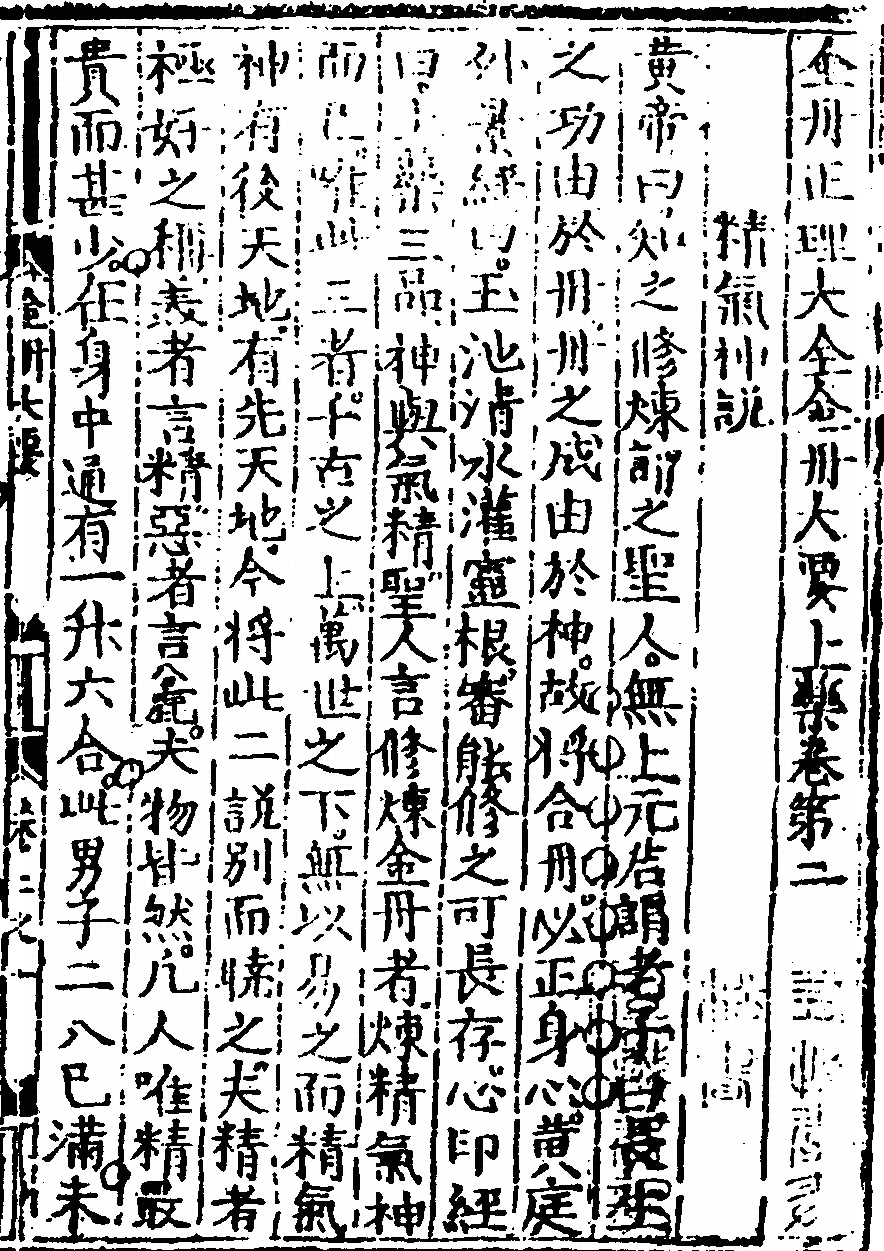 金丹正理大全金丹大要上藥卷第二
精氣神說
黃帝曰知之修煉謂之聖人無上元君謂老子曰長生
之功由於丹丹之成由於神故將合丹必正身心黃庭
外景經曰玉池清水灌靈根審能修之可長存心印經
曰上藥三品神與氣精聖人言修煉金丹者煉精氣神
而已唯此三者千古之上萬世之下無以易之而精氣
神有後天地有先天地今將此二說別而悚之夫精者
極好之稱美者言精惡者言麄夫物皆然凡人唯精最
貴而甚少在身中通有一升六合此男子二八已滿未
金丹大要 卷之二